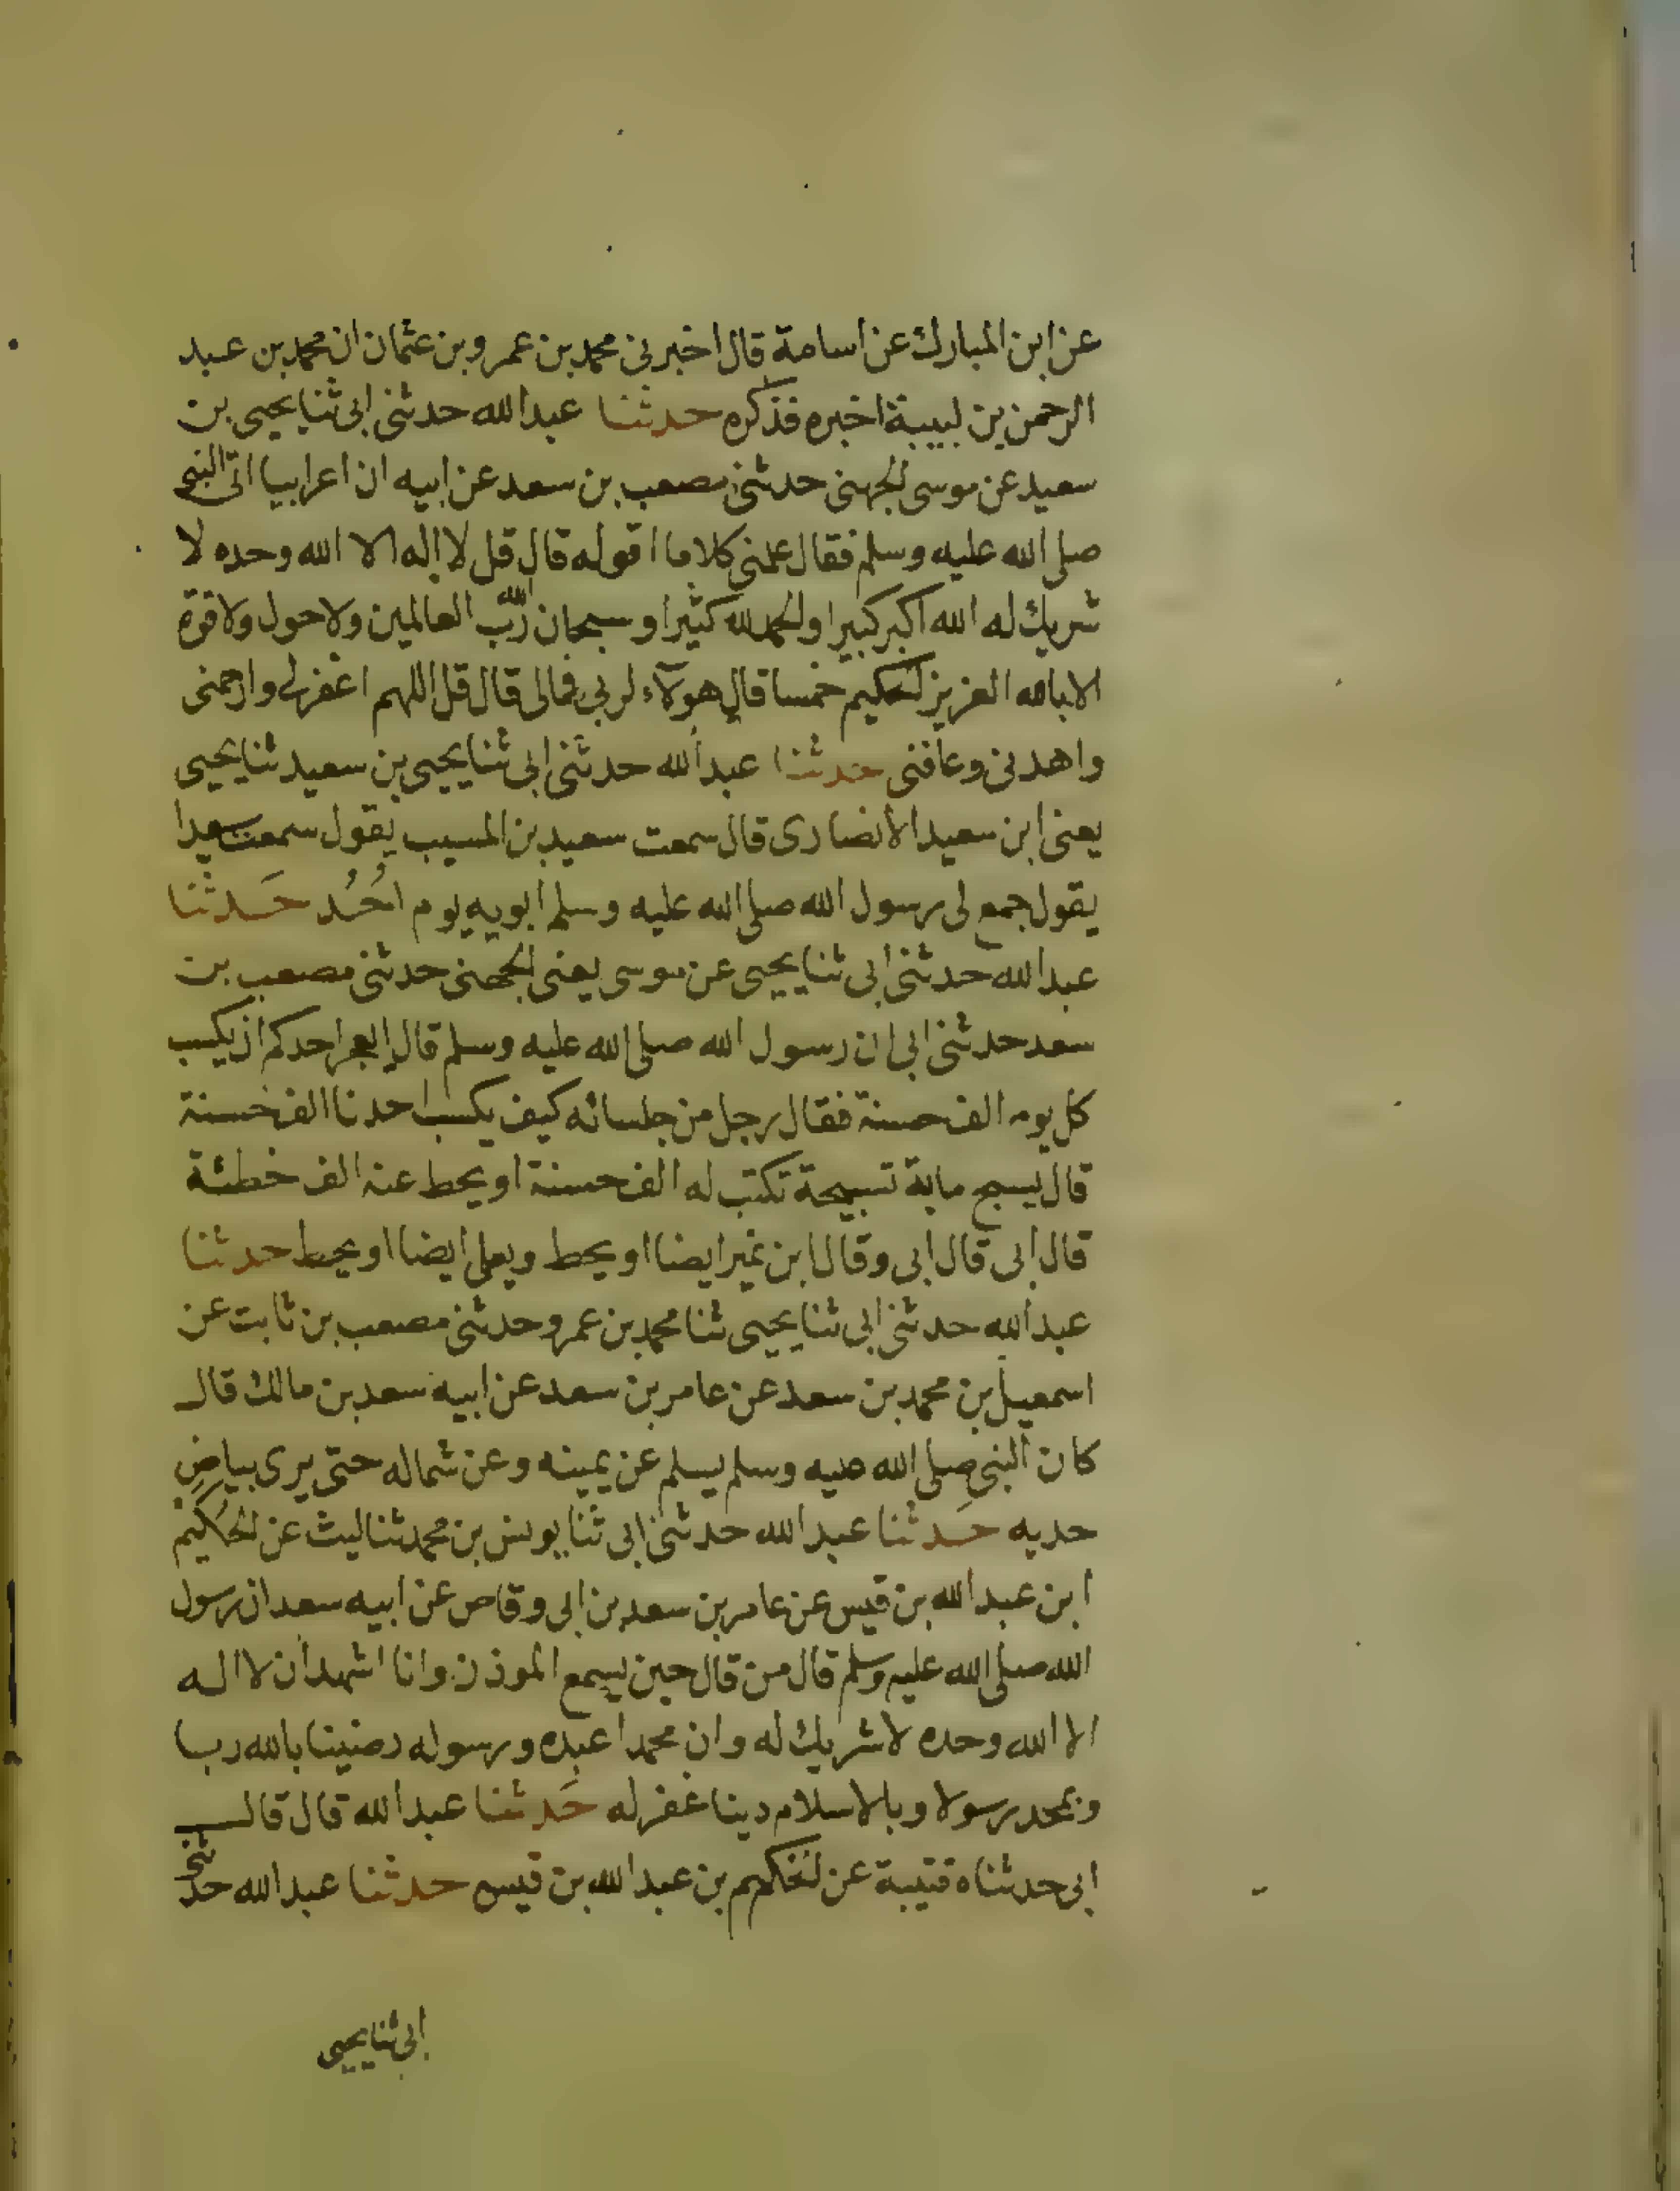 عن ابن المبارك عن اسامة قال اخبرني محمد بن عمرو بن عثمان ان محمد بن عبد
الرحمن بن لبيبة اخبره فذكره حدثنا عبد الله حدثني ابي ثنا يحيى بن
سعيد عن موسى الجهني حدثني مصعب بن سعد عن ابيه ان اعرابيا اتى النبي
صلى الله عليه وسلم فقال علمني كلاما اقوله قال قل لا اله الا الله وحده لا
شريك له الله اكبر كبيرا والحمد لله كثيرا وسبحان الله رب العالمين ولا حول ولا قوة
الا بالله العزيز الحكيم خمسا قال هولآء لربي فمالي قال قل اللهم اغفرلي وارحمني
واهدني وعافني حدثنا عبد الله حدثني ابي ثنا يحيى بن سعيد ثنا يحيى
يعني ابن سعيد الانصاري قال سمعت سعيد بن المسيب يقول سمعت سعدا
يقول جمع لي رسول الله صلى الله عليه وسلم ابويه يوم احُد حَدثنا
عبد الله حدثني ابي ثنا يحيى عن موسى يعني الجهني حدثني مصعب بن
سعد حدثني ابي ان رسول الله صلى الله عليه وسلم قال ايعجز احدكم ان يكسب
كل يوم الف حسنة فقال رجل من جلسائه كيف يكسب احدنا الف حسنة
قال يسبح ماية تسبيحة تكتب له الف حسنة او يحط عنه الف خطئة
قال ابي قال ابي وقال ابن نمير ايضا او يحط ويعلى ايضا او يحط حدثنا
عبد الله حدثني ابي ثنا يحيى ثنا محمد بن عمرو حدثني مصعب بن ثابت عن
اسمعيل بن محمد بن سعد عن عامر بن سعد عن ابيه سعد بن مالك قال
كان النبي صلى الله عليه وسلم يسلم عن يمينه وعن شماله حتى يرى بياض
خديه حَدثنا عبد الله حدثني ابي ثنا يونس بن محمد ثنا ليث عن الحُكيم
ابن عبد الله بن قيس عن عامر بن سعد بن ابي وقاص عن ابيه سعد ان رسول
الله صلى الله عليه وسلم قال من قال حين يسمع الموذن وانا اشهد ان لا اله
الا الله وحده لا شريك له وان محمدا عبده ورسوله رضينا بالله ربا
وبمحمد رسولا وبالاسلام دينا غفر له حَدثنا عبد الله قال قال
ابي حدثناه قتيبة عن الحكيم بن عبد الله بن قيس حدثنا عبد الله حدثني
ابي ثنا يحيى